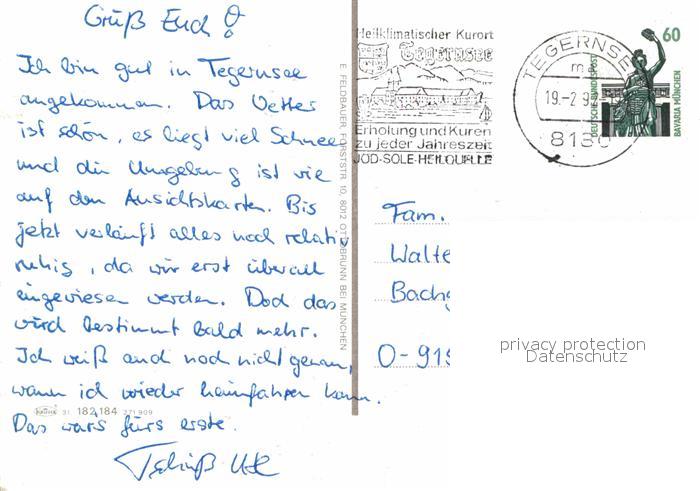 Grüß Euch!
Ich bin gut in Tegernsee
angekommen. Das Wetter
ist schön, es liegt viel Schnee
und die Umgebung ist wie
auf den Ansichtskarten. Bis
jetzt verläuft alles noch relativ
ruhig, da wir erst überall
eingewiesen werden. Doch das
wird bestimmt bald mehr.
Ich weiß auch noch nicht genau,
wann ich wieder heimfahren kann.
Das wars fürs erste.
Tschüß
KRÜGER 31 182 184 271 909
E. FELDBAUER, FORSTSTR. 10, 8012 OTTOBRUNN BEI MÜNCHEN
Heilklimatischer Kurort
Tegernsee
Erholung und Kuren
zu jeder Jahreszeit
JOD-SOLE-HEILQUELLE
TEGERNSEE
19.-2.9
8180
60
DEUTSCHE BUNDESPOST
BAVARIA MÜNCHEN
Fam.
Walte
Bachg
O-919
privacy protection
Datenschutz